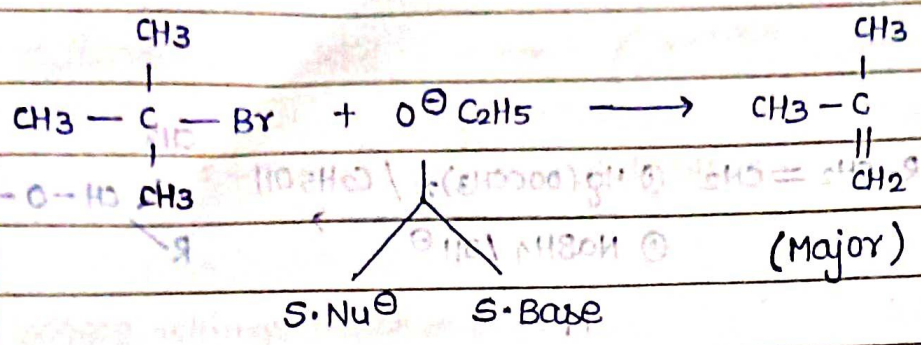 CH3 CH3
CH3 — C — Br + O⊖ C2H5 ⟶ CH3 — C
CH3 CH2
(Major)
S·Nu⊖ S·Base